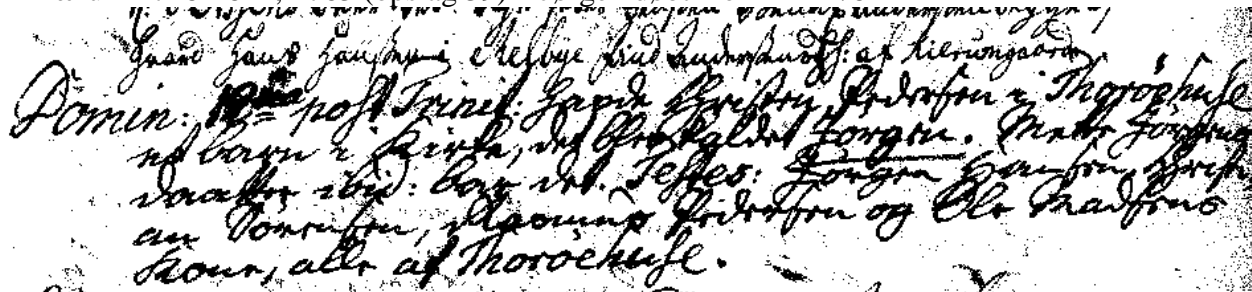 Gaard Hans Hansen i Melbye Knud Andersen af Kierumgaard
Domin: post Trinit: hafde Christen Pedersen i Thoröehuse
et barn i Kirke, det blev kaldet Jørgen. Mette Jørgens
daatter ibid: bar det. Testes: Jørgen Hansen, Christi
an Sørensen, Pedersen og Ole Madsens
Kone, alle af Thoröehuse.